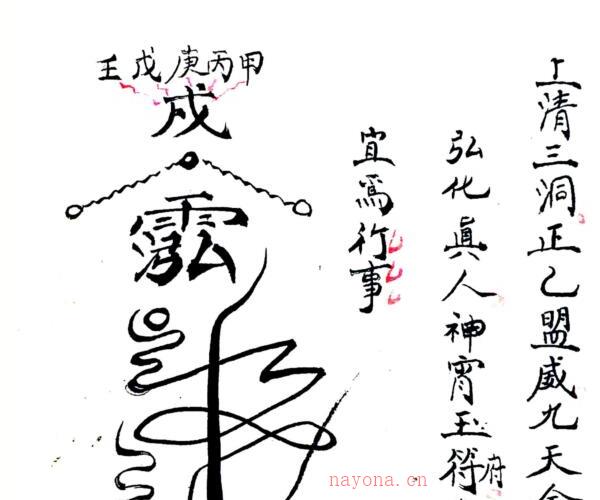 上清三洞正乙盟威九天金
弘化真人神霄玉府符
宜焉行事
甲丙庚戊壬
戍
nayona.cn